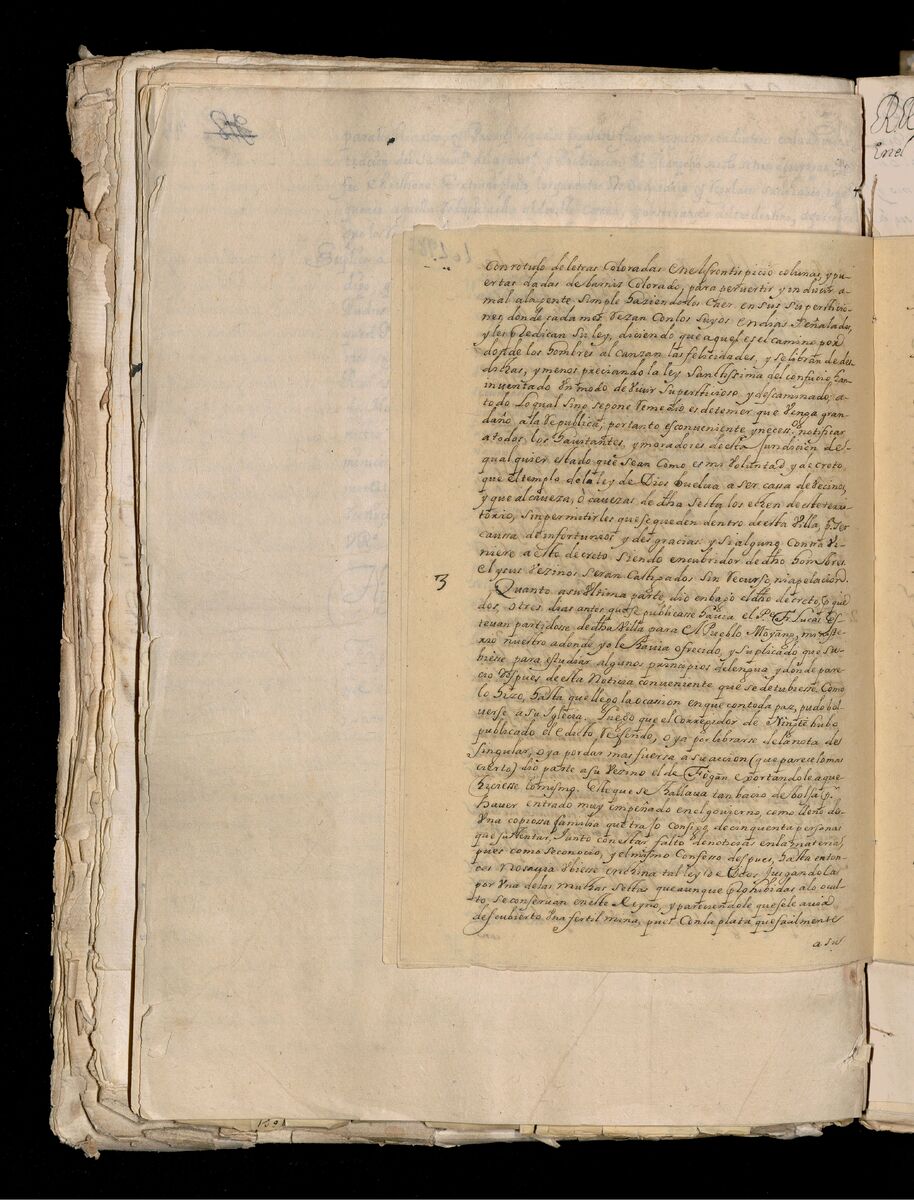 Con rotulo de letras Coloradas en el frontispicio colunas, y pu-
ertas dadas de barnis Colorado, para pervertir y inducir a
mal a la gente simple haziendolos Cher en sus supersticio-
nes, donde cada mes Rezan Con los suyos en dias señalados,
y les Predican su ley, diciendo que aquel es el camino por
donde los hombres alcanzan las felicidades, y se libran de des-
dichas, y menos preciando la ley Santissima del confucio, han
inventado Un modo de Vivir Supersticioso, y descaminado; a
todo lo qual sino se pone Remedio es de temer que Venga gran
daño a la Republica; por tanto es conveniente y necess.º notificar
a todos los havitantes, y moradores de esta Jurisdicion de
qualquier estado que sean Como es mi Voluntad y decreto
que el templo de la ley de Dios buelva a ser cassa de Vecinos,
y que al caveza, ò cavezas de dha secta los echen de este terri-
torio, sin permitirles que se queden dentro de esta Villa, p.r ser
caussa de infortuneos y desgracias y si alguno Contra Vi-
niere a esto decreto siendo encubridor de dho hombres
el y sus Vezinos seran Castigados sin Recurso, ni apelacion.
3 Quanto a su Ultima parte dio en bago el dho decreto, p.r que
dos, o tres dias antes que se publicasse havia el P.e Fr. Lucas Es-
tevan partidosse de dha Villa para el Pueblo Moyang, ministe-
rio nuestro adonde yo le havia ofrecido, y suplicado que su-
biesse para estudiar algunos principios de lengua y donde pare-
cio despues de esta Noticia conveniente que se detubiesse Como
lo hizo, hasta que llego la ocasion en que con toda paz, pudo bol-
verse a su Iglecia. Luego que el Corregidor de Ningte hubo
publicado el edicto Referido, o ya por librarse de la nota de
singular, o ya por dar mas fuersa a su accion (que parece lo mas
cierto) dio parte a su Vezino el de Fogan exortandole a que
hiciesse lo mismo. Este que se hallava tan bacio de bolsa p.r
haver entrado muy empeñado en el govierno, como lleno de
Una copiossa familia que traxo consigo, de cinquenta personas
que sustentar, Junto con estar falto de noticias en la materia,
pues como se conocio, y el mismo Confesso despues, hasta enton-
ces no savia Ubiese en china tal ley de Dios Jusgandola
por Una de las muchas sectas que aunque prohibidas a lo ocul-
to, se conservan en este Reyno, y pareciendole que se le avia
descubierto Una fertil mina, pues Con la plata que facilmente
a su